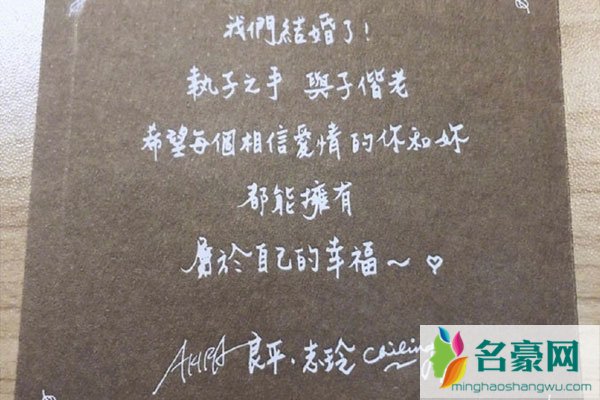 我們結婚了!
執子之手 與子偕老
希望每個相信愛情的你和妳
都能擁有
屬於自己的幸福~♡
AKIRA 良平.志玲 Chiling
名豪网
minghaoshangwu.com